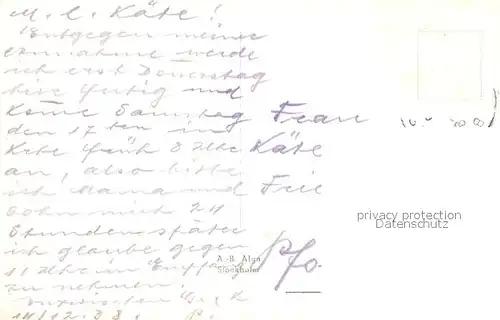 M. l. Käte!
Entgegen meiner
werde
ich erst Donnerstag
hier fertig und
komme Samstag
den 17ten in
früh 8 Uhr
an, also bitte
ich Mama und
Sohn mich 24
Stunden später
ich glaube gegen
11 Uhr in Empfang
zu nehmen.
Inzwischen
14/12.38.
Frau
Käte
Pfo
A.-B. Alga
Stockholm
privacy protection
Datenschutz